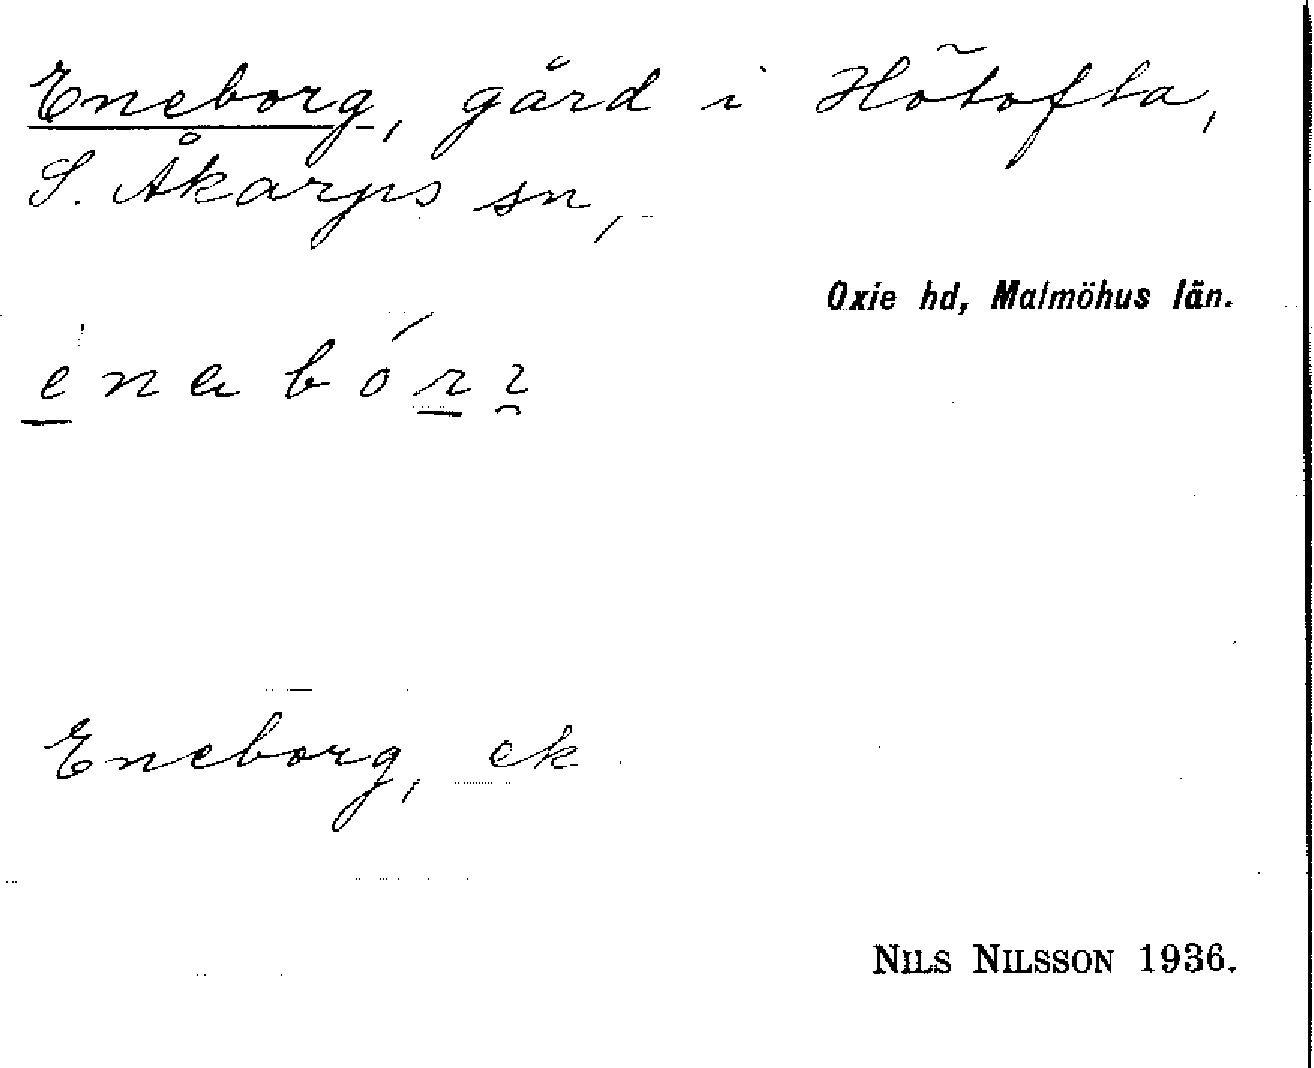 Eneborg, gård i Hötofta,
S. Åkarps sn,
Oxie hd, Malmöhus län.
Eneborg, ek
NILS NILSSON 1936.